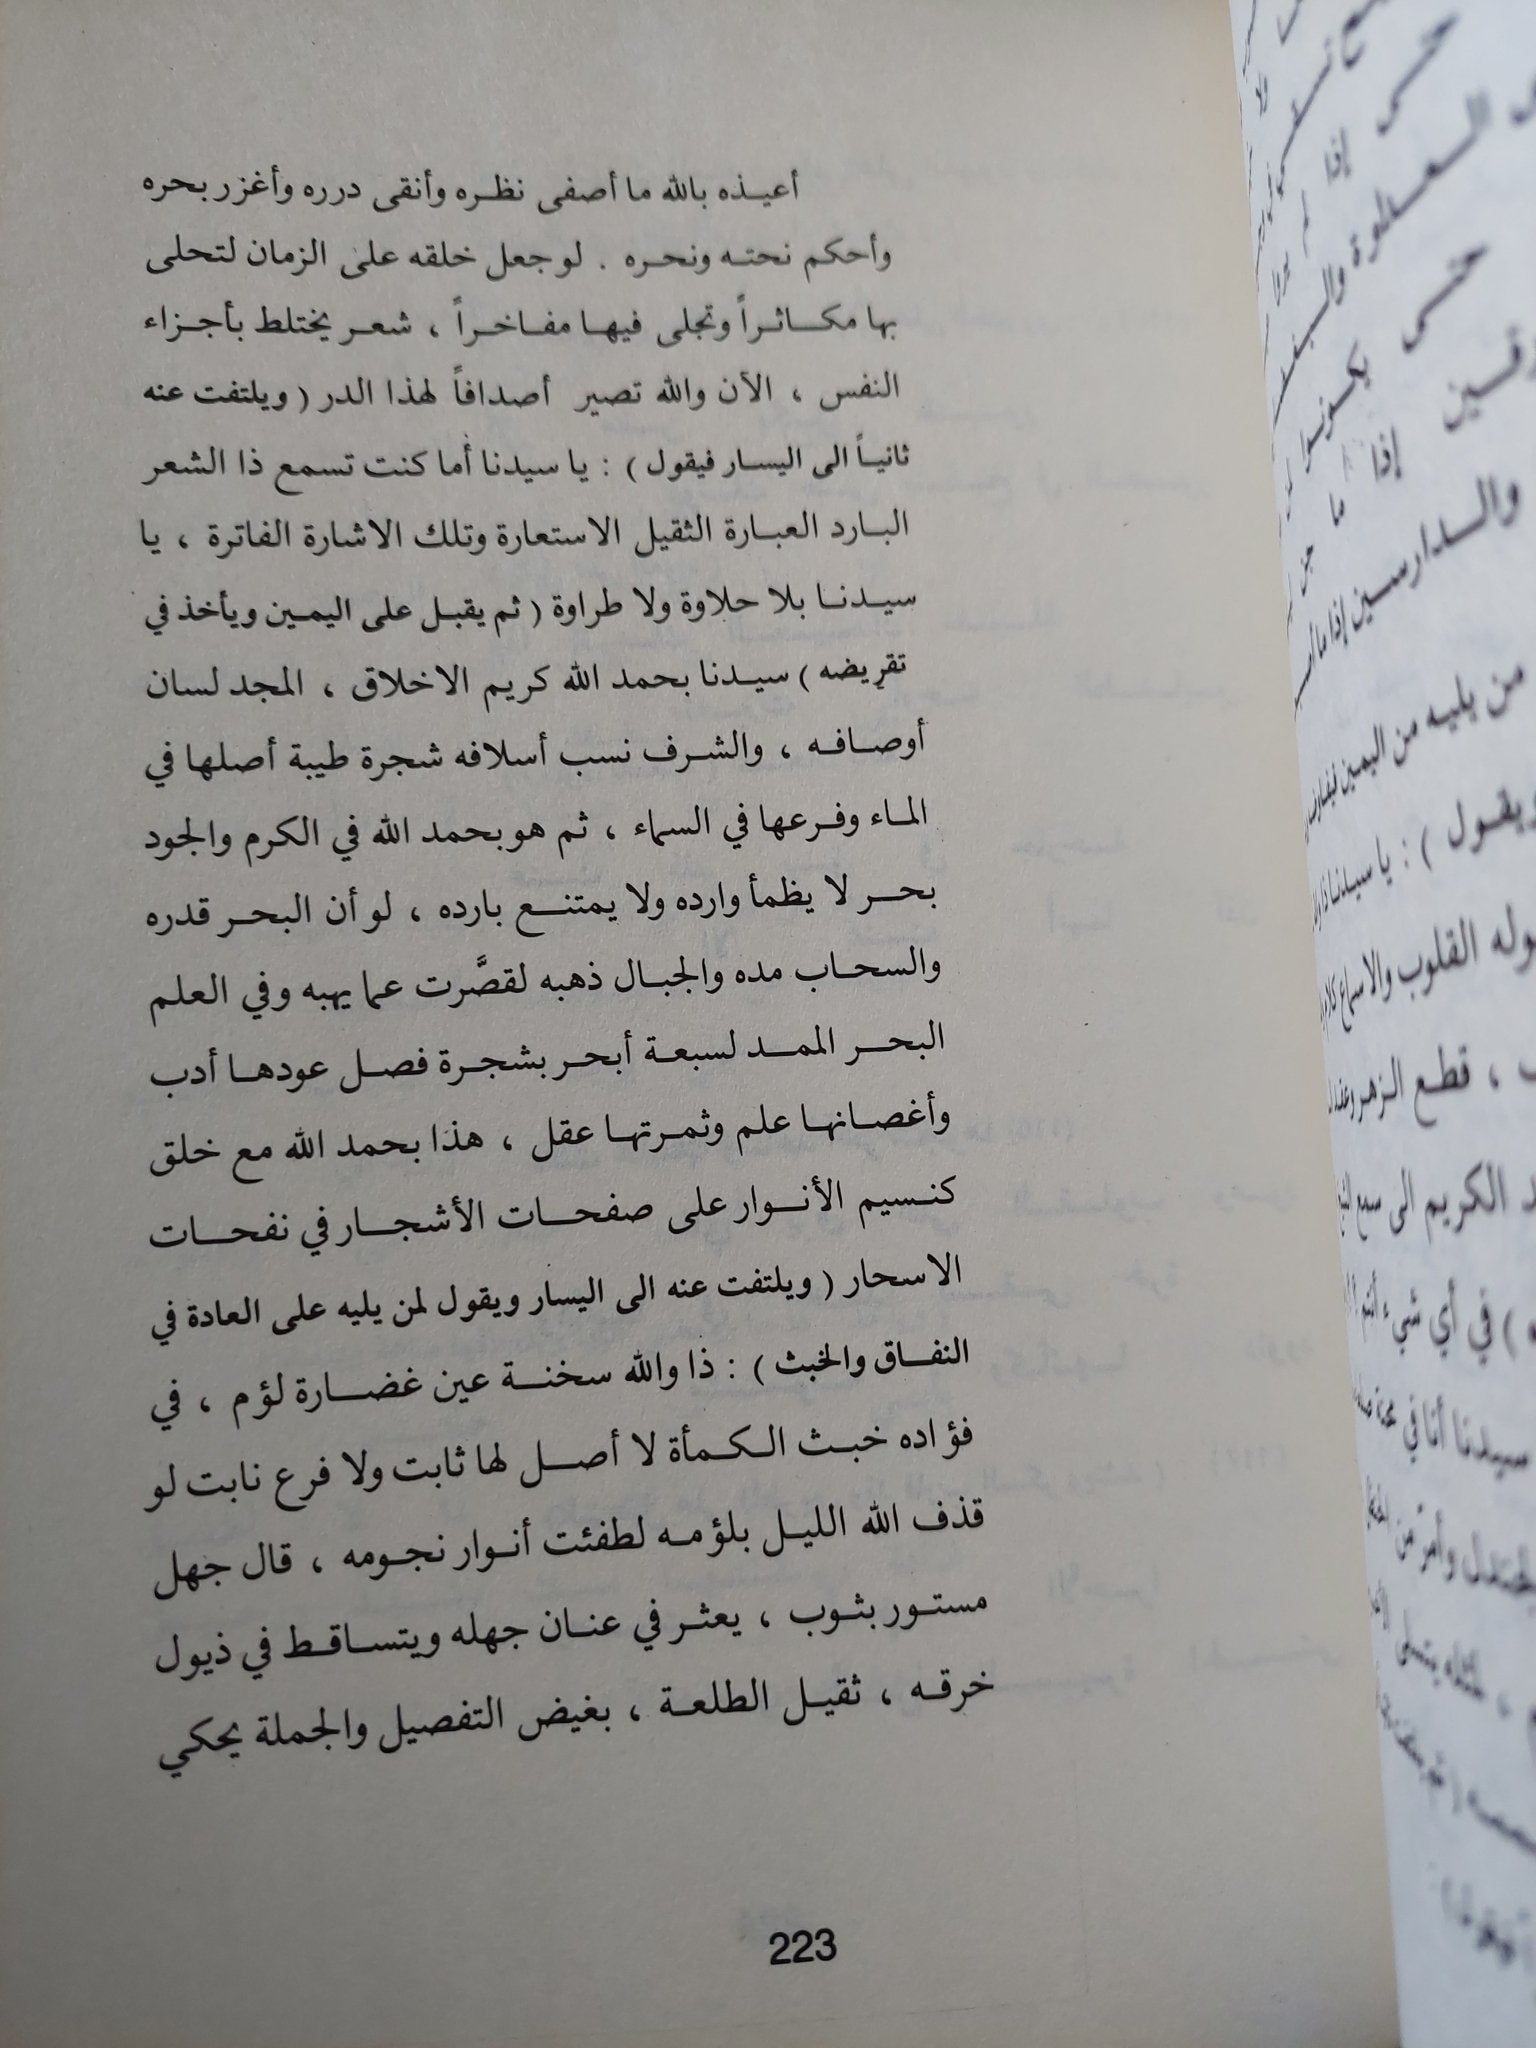 أعيذه بالله ما أصفى نظره وأنقى درره وأغزر بحره
وأحكم نحته ونحره . لو جعل خلقه على الزمان لتحلى
بها مكاثراً وتجلى فيها مفاخراً ، شعر يختلط بأجزاء
النفس ، الآن والله تصير أصدافاً لهذا الدر ( ويلتفت عنه
ثانياً الى اليسار فيقول ) : يا سيدنا أما كنت تسمع ذا الشعر
البارد العبارة الثقيل الاستعارة وتلك الاشارة الفاترة ، يا
سيدنا بلا حلاوة ولا طراوة ( ثم يقبل على اليمين ويأخذ في
تقريضه ) سيدنا بحمد الله كريم الاخلاق ، المجد لسان
أوصافه ، والشرف نسب أسلافه شجرة طيبة أصلها في
الماء وفرعها في السماء ، ثم هو بحمد الله في الكرم والجود
بحر لا يظمأ وارده ولا يمتنع بارده ، لو أن البحر قدره
والسحاب مده والجبال ذهبه لقصَّرت عما يهبه وفي العلم
البحر الممد لسبعة أبحر بشجرة فصل عودها أدب
وأغصانها علم وثمرتها عقل ، هذا بحمد الله مع خلق
كنسيم الأنوار على صفحات الأشجار في نفحات
الاسحار ( ويلتفت عنه الى اليسار ويقول لمن يليه على العادة في
النفاق والخبث ) : ذا والله سخنة عين غضارة لؤم ، في
فؤاده خبث الكمأة لا أصل لها ثابت ولا فرع نابت لو
قذف الله الليل بلؤمه لطفئت أنوار نجومه ، قال جهل
مستور بثوب ، يعثر في عنان جهله ويتساقط في ذيول
خرقه ، ثقيل الطلعة ، بغيض التفصيل والجملة يحكي
223
حتى إذا لم
حتى يكونوا
إذا ما
والدارسين إذا ما
من يليه من اليمين
ويقول ) : يا سيدنا ذا
القلوب والاسماع
، قطع الزهر
الكريم الى سمع
) في أي شيء أنتم
سيدنا أنا في
وأمرّ من